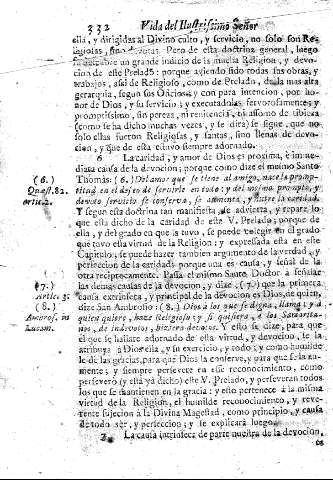 332 Vida del Ilustrissimo Señor
ella, y dirigidas al Divino culto, y servicio, no solo son Re-
ligiosas, sino devotas. Pero de esta doctrina general, luego
se descubre un grande indicio de la mucha Religion, y devo-
cion de este Prelado: porque aviendo sido todas sus obras, y
trabajos, assi de Religioso, como de Prelado, de la mas alta
gerarquia, segun sus Oficios, y con pura intencion, por ho-
nor de Dios, y su servicio; y executadolas fervorosamente, y
promptissimo, sin pereza, ni renitencia, ni assomo de tibieza
(como se ha dicho muchas vezes, y se dirá) se sigue, que no
solo ellas fueron Religiosas, y santas, sino llenas de devo-
cion, y que de esta estuvo siempre adornado.
6 La caridad, y amor de Dios es proxima, è imme-
diata causa de la devocion; porque como dize el mismo Santo
(6.) Thomás: (6.) Del amor que se tiene al amigo, nace la promp-
Quæst. 82. titud en el deseo de servirle en todo: y del mismo prompto, y
artic. 2. devoto servicio se conserva, se aumenta, y nutre la caridad.
Y segun esta doctrina tan manifiesta, se advierta, y repare lo
que esta dicho de la caridad de este V. Prelado; porque de
ella, y del grado en que la tuvo, se puede colegir en el grado
que tuvo esta virtud de la Religion: y expressada esta en este
Capitulo, se puede hazer tambien argumento de la verdad, y
perfeccion de la caridad: porque una es causa, y señal de la
otra reciprocamente. Passa el mismo Santo Doctor à señalar
(7.) las demás causas de la devocion, y dize (7.) que la primera
Artic. 3. causa extrinseca, y principal de la devocion es Dios, de quien,
(8.) dize San Ambrosio: (8.) Dios à los que se digna, llama; y à
Ambros. in quien quiere, haze Religioso; y si quisiera, à los Samarita-
Lucam. nos, de indevotos, hiziera devotos. Y esto se dize, para que
el que se hallare adornado de esta virtud, y devocion, se la
atribuya à Dios ella, y su exercicio, y todo; y como humilde
le de las gracias, para que Dios la conserve, y para que se la au-
mente; y siempre persevere en esse reconocimiento, como
perseveró (està ya dicho) este V. Prelado, y perseveran todos
los que se mantienen en la gracia: y esto pertenece à la misma
virtud de la Religion, el humilde reconocimiento, y reve-
rente sujecion à la Divina Magestad, como principio, y causa
de todo ser, y perfeccion; y se explicará luego.
La causa intrinseca de parte nuestra de la devocion,
es